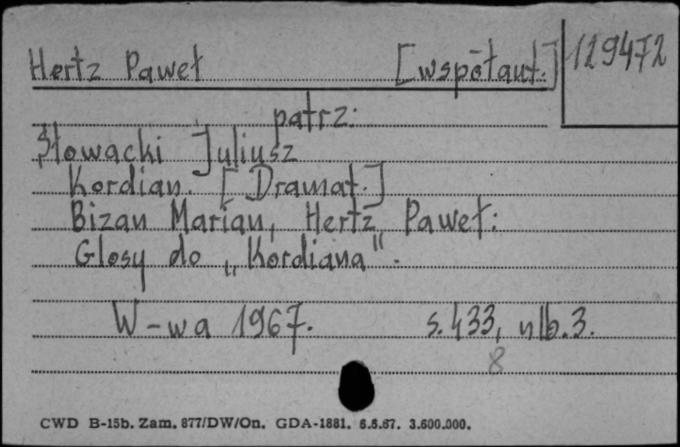 Hertz Paweł [współaut.] 129472
patrz:
Słowacki Juliusz
Kordian. [Dramat.]
Bizan Marian, Hertz Paweł:
Glosy do „Kordiana".
W-wa 1967. s. 433, nlb. 3.
8
CWD B-15b. Zam. 877/DW/On. GDA-1881. 6.5.67. 3.600.000.